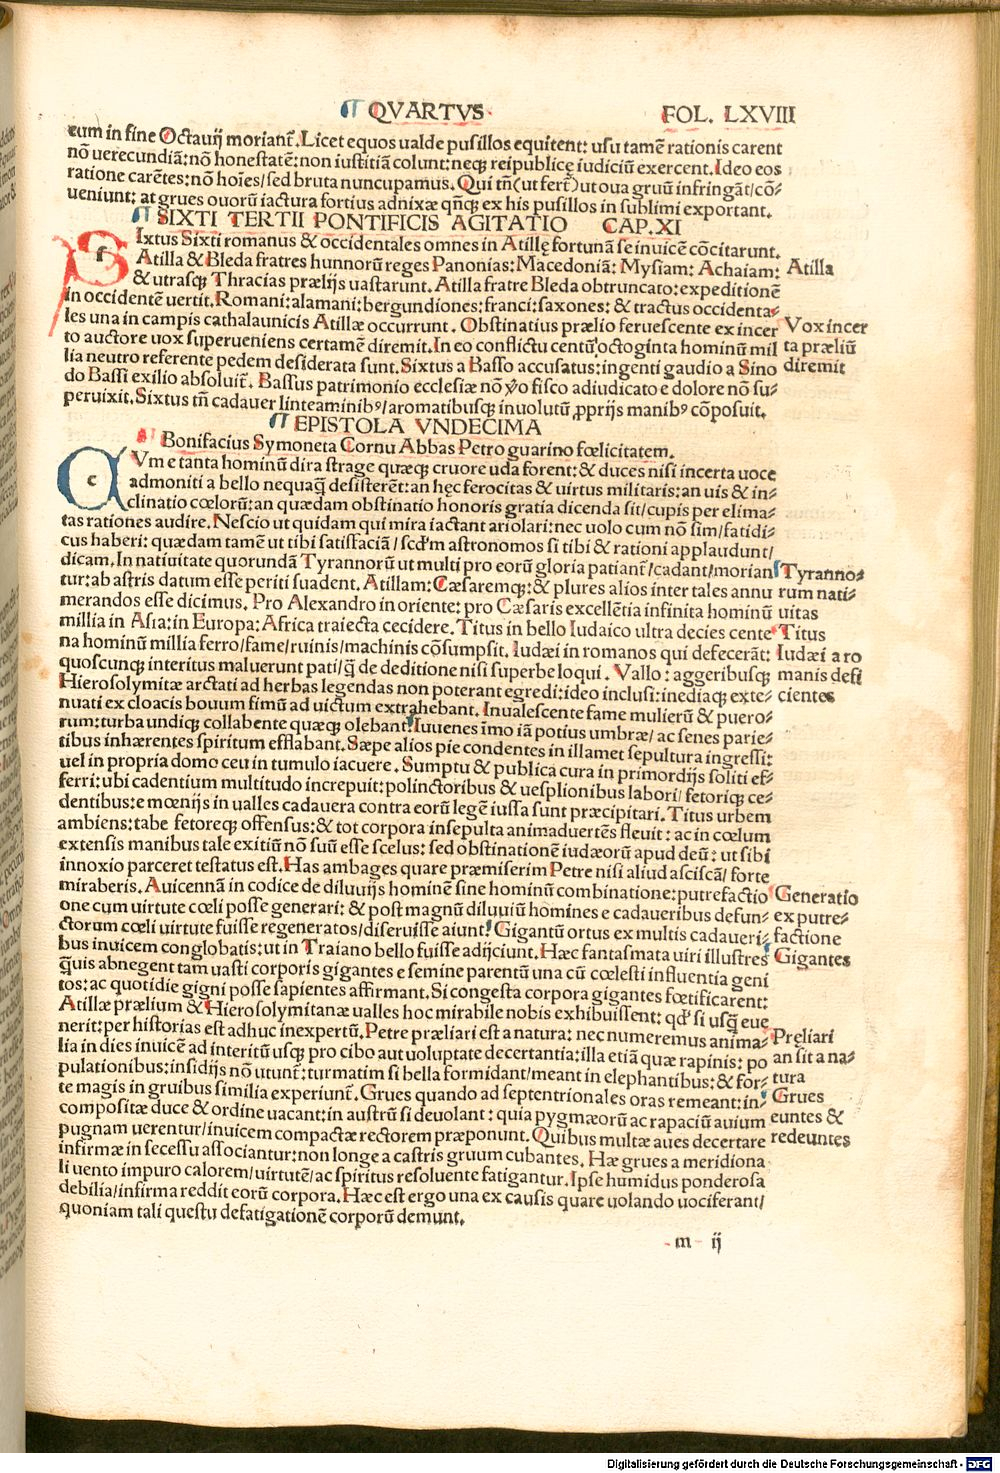 ¶ QVARTVS
FOL. LXVIII
cum in fine Octauij moriant̄. Licet equos ualde pusillos equitent: usu tamē rationis carent
nō uerecundiā: nō honestatē: non iustitiā colunt: neqꝫ reipublicę iudiciū exercent. Ideo eos
ratione carētes: nō hoīes/ sed bruta nuncupamus. Qui tn̄ (ut fert̄) ut oua gruū infringāt/ cō⸗
ueniunt: at grues ouorū iactura fortius adnixæ qn̄qꝫ ex his pusillos in sublimi exportant.
¶ SIXTI TERTII PONTIFICIS AGITATIO CAP. XI
Sixtus Sixti romanus & occidentales omnes in Atillę fortunā se inuicē cōcitarunt.
Atilla & Bleda fratres hunnorū reges Panonias: Macedoniā: Mysiam: Achaiam:
& utrasqꝫ Thracias prælijs uastarunt. Atilla fratre Bleda obtruncato: expeditionē
in occidentē uertit. Romani: alamani: bergundiones: franci: saxones: & tractus occidenta⸗
les una in campis cathalaunicis Atillæ occurrunt. Obstinatius prælio feruescente ex incer
to auctore uox superueniens certamē diremit. In eo conflictu centū octoginta hominū mil
lia neutro referente pedem desiderata sunt. Sixtus a Basso accusatus: ingenti gaudio a Sino
do Bassi exilio absoluit̄. Bassus patrimonio ecclesiæ nō ꝟo fisco adiudicato e dolore nō su⸗
peruixit. Sixtus tn̄ cadauer linteaminibꝰ/ aromatibusqꝫ inuolutū ꝓprijs manibꝰ cōposuit.
Atilla
Vox incer
ta præliū
diremit
¶ EPISTOLA VNDECIMA
Bonifacius Symoneta Cornu Abbas Petro guarino fœlicitatem.
CVm e tanta hominū dira strage quæqꝫ cruore uda forent: & duces nisi incerta uoce
admoniti a bello nequaq̄ desisterēt: an hęc ferocitas & uirtus militaris: an uis & in⸗
clinatio cœlorū: an quædam obstinatio honoris gratia dicenda sit/ cupis per elima⸗
tas rationes audire. Nescio ut quidam qui mira iactant ariolari: nec uolo cum nō sim/ fatidi⸗
cus haberi: quædam tamē ut tibi satisfaciā/ scd'm astronomos si tibi & rationi applaudunt/
dicam. In natiuitate quorundā Tyrannorū ut multi pro eorū gloria patiant̄/ cadant/ morian
tur: ab astris datum esse periti suadent. Atillam: Cæsaremqꝫ: & plures alios inter tales annu
merandos esse dicimus. Pro Alexandro in oriente: pro Cæsaris excellētia infinita hominū
millia in Asia: in Europa: Africa traiecta cecidere. Titus in bello Iudaico ultra decies cente
na hominū millia ferro/ fame/ ruinis/ machinis cōsumpsit. Iudæi in romanos qui defecerāt:
quoscunqꝫ interitus maluerunt pati/ q̄ de deditione nisi superbe loqui. Vallo: aggeribusqꝫ
Hierosolymitæ arctati ad herbas legendas non poterant egredi: ideo inclusi: inediaqꝫ exte⸗
nuati ex cloacis bouum fimū ad uictum extrahebant. Inualescente fame mulierū & puero⸗
rum: turba undiqꝫ collabente quæqꝫ olebant. Iuuenes īmo iā potius umbræ/ ac senes parie⸗
tibus inhærentes spiritum efflabant. Sæpe alios pie condentes in illamet sepultura ingressi:
uel in propria domo ceu in tumulo iacuere. Sumptu & publica cura in primordijs soliti ef⸗
ferri: ubi cadentium multitudo increpuit: polinctoribus & uesplionibus labori/ fetoriqꝫ ce⸗
dentibus: e mœnijs in ualles cadauera contra eorū legē iussa sunt præcipitari. Titus urbem
ambiens: tabe fetoreqꝫ offensus: & tot corpora insepulta animaduertēs fleuit: ac in cœlum
extensis manibus tale exitiū nō suū esse scelus: sed obstinationē iudæorū apud deū: ut sibi
innoxio parceret testatus est. Has ambages quare præmiserim Petre nisi aliud asciscā/ forte
miraberis. Auicennā in codice de diluuijs hominē sine hominū combinatione: putrefactio
one cum uirtute cœli posse generari: & post magnū diluuiū homines e cadaueribus defun⸗
ctorum cœli uirtute fuisse regeneratos/ diseruisse aiunt. Gigantū ortus ex multis cadaueri⸗
bus inuicem conglobatis: ut in Traiano bello fuisse adijciunt. Hæc fantasmata uiri illustres
q̄uis abnegent tam uasti corporis gigantes e semine parentū una cū cœlesti influentia geni
tos: ac quotidie gigni posse sapientes affirmant. Si congesta corpora gigantes fœtificarent:
Atillæ prælium & Hierosolymitanæ ualles hoc mirabile nobis exhibuissent: qd' si usq̄ eue
nerit: per historias est adhuc inexpertū. Petre præliari est a natura: nec numeremus anima⸗
lia in dies inuicē ad interitū usqꝫ pro cibo aut uoluptate decertantia: illa etiā quæ rapinis: po
pulationibus: insidijs nō utunt̄: turmatim si bella formidant/ meant in elephantibus: & for⸗
te magis in gruibus similia experiunt̄. Grues quando ad septentrionales oras remeant: in⸗
compositæ duce & ordine uacant: in austrū si deuolant: quia pygmæorū ac rapaciū auium
pugnam uerentur/ inuicem compactæ rectorem præponunt. Quibus multæ aues decertare
infirmæ in secessu associantur: non longe a castris gruum cubantes. Hæ grues a meridiona
li uento impuro calorem/ uirtutē/ ac spiritus resoluente fatigantur. Ipse humidus ponderosa
debilia/ infirma reddit eorū corpora. Hæc est ergo una ex causis quare uolando uociferant/
quoniam tali questu defatigationē corporū demunt.
Tyranno⸗
rum nati⸗
uitas
Titus
Iudæi a ro
manis defi
cientes
Generatio
ex putre⸗
factione
Gigantes
Pręliari
an sit a na⸗
tura
Grues
euntes &
redeuntes
m ij
Digitalisierung gefördert durch die Deutsche Forschungsgemeinschaft - DFG